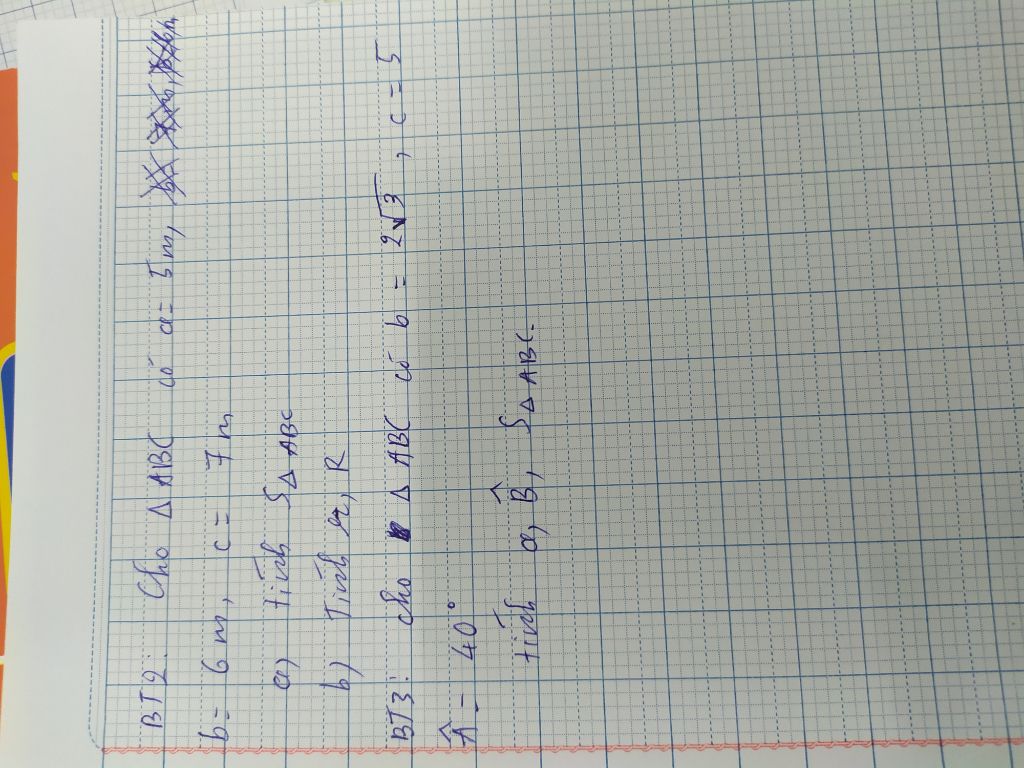 BT2: Cho Δ ABC có a = 5 m,
b = 6 m, c = 7 m
a) tính S Δ ABC
b) Tính r, R
BT3: cho Δ ABC có b = 2√3, c = 5
Â = 40°
tính a, B̂, S Δ ABC.